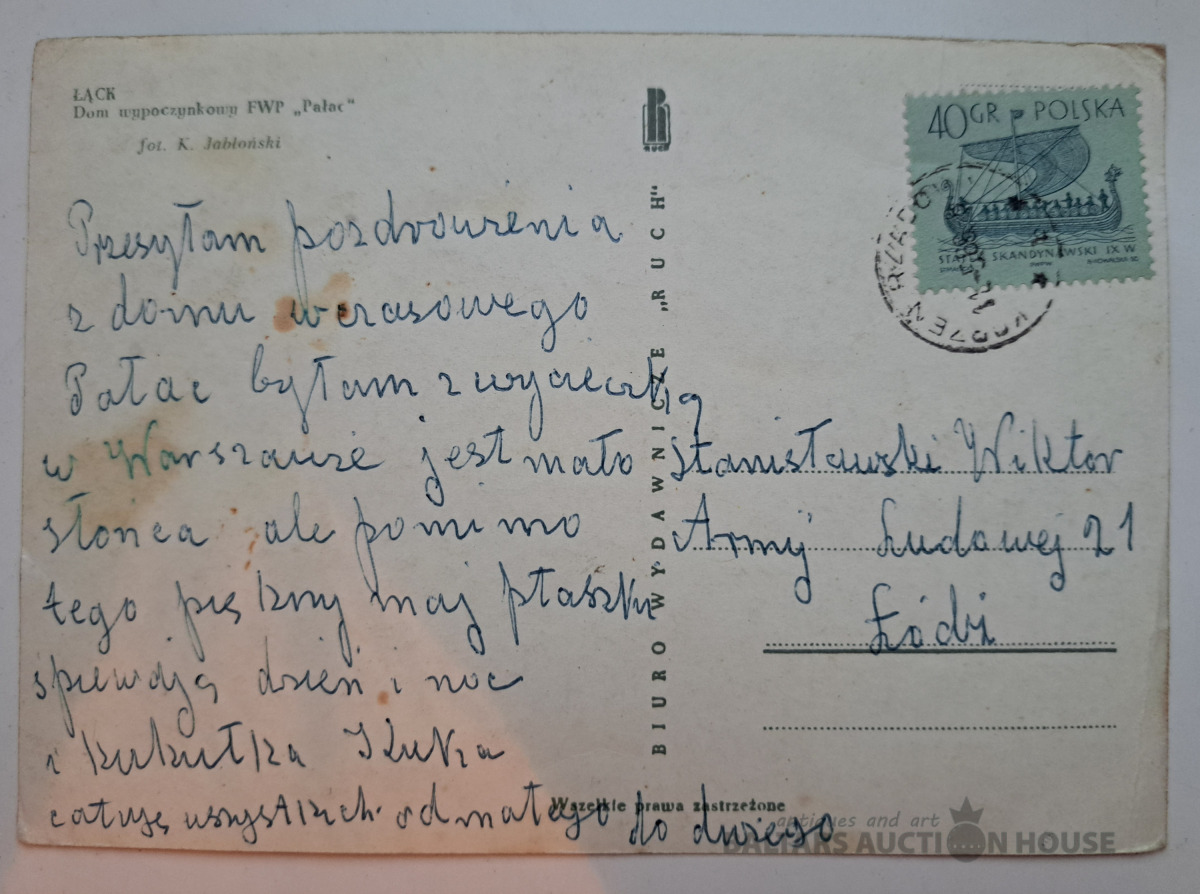 ŁĄCK
Dom wypoczynkowy FWP „Pałac“
fot. K. Jabłoński
RUCH
40 GR POLSKA
SKANDYNAWSKI IX W
Przesyłam pozdrowienia
z domu wczasowego
Pałac byłam z wycieczką
w Warszawie jest mało
słońca ale pomimo
tego piękny maj ptaszki
śpiewają dzień i noc
i kukułka kuka
całuję wszystkich od małego do dużego
BIURO WYDAWNICZE „RUCH“
Stanisławski Wiktor
Armij Ludowej 21
Łódź
Wszelkie prawa zastrzeżone
antiques and art
BALTARS AUCTION HOUSE